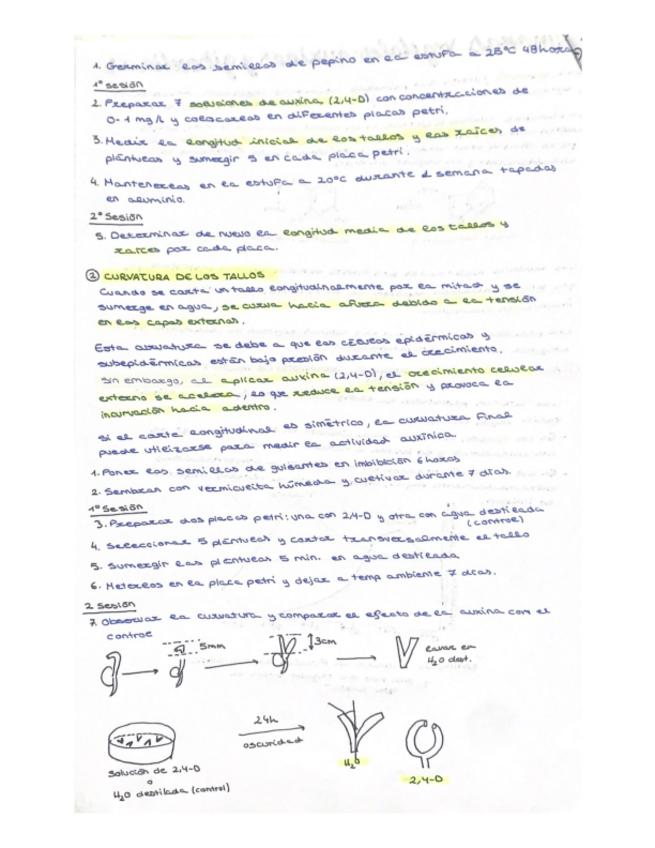 1. Germinar las semillas de pepino en la estufa a 28°C 48 horas
1ª sesión
2. Preparar 7 soluciones de auxina (2,4-D) con concentraciones de
0-1 mg/L y colocarlas en diferentes placas petri.
3. Medir la longitud inicial de los tallos y las raíces de
plántulas y sumergir 5 en cada placa petri.
4. Mantenerlas en la estufa a 20°C durante 1 semana tapadas
en aluminio.
2ª Sesión
5. Determinar de nuevo la longitud media de los tallos y
raíces por cada placa.
② CURVATURA DE LOS TALLOS
Cuando se corta un tallo longitudinalmente por la mitad y se
sumerge en agua, se curva hacia afuera debido a la tensión
en las capas externas.
Esta curvatura se debe a que las células epidérmicas y
subepidérmicas están bajo presión durante el crecimiento.
Sin embargo, al aplicar auxina (2,4-D), el crecimiento celular
externo se acelera, lo que reduce la tensión y provoca la
incurvación hacia adentro.
Si el corte longitudinal es simétrico, la curvatura final
puede utilizarse para medir la actividad auxínica.
1. Poner las semillas de guisantes en imbibición 6 horas
2. Sembrar con vermiculita húmeda y cultivar durante 7 días.
1ª Sesión
3. Preparar dos placas petri: una con 2,4-D y otra con agua destilada
(control)
4. Seleccionar 5 plántulas y cortar transversalmente el tallo
5. Sumergir las plántulas 5 min. en agua destilada
6. Meterlos en la placa petri y dejar a temp ambiente 7 días.
2 Sesión
7. Observar la curvatura y comparar el efecto de la auxina con el
control
5mm
3cm
lavar en
H₂O dest.
24h
oscuridad
Solución de 2,4-D
o
H₂O destilada (control)
H₂O
2,4-D